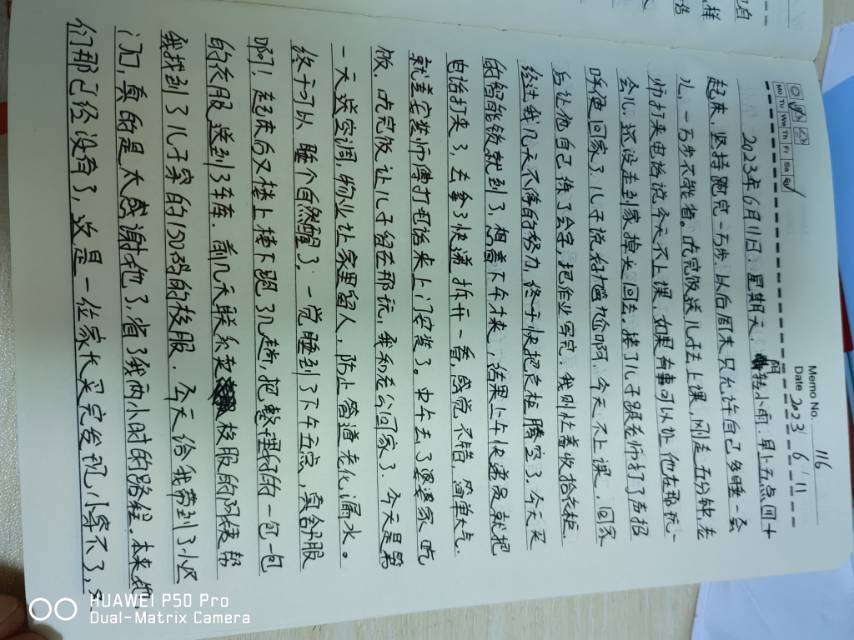 Memo No. 116
Date 2023 / 6 / 11
Mo Tu We Th Fr Sa Su
2023年6月11日. 星期天. 阴转小雨. 早上五点四十
起床, 坚持跑完一万步, 以后周末只允许自己多睡一会
儿, 一万步不能省。吃完饭送儿子去上课, 刚走五分钟, 老
师打来电话说今天不上课, 如果有事可以让他在那玩一
会儿. 还没走到家掉头回去, 接了儿子跟老师打了声招
呼便回家了. 儿子说好尴尬啊, 今天不上课. 回家
后让他自己练了会字, 把作业写完. 我则忙着收拾衣柜.
经过我几天不停的努力, 终于快把衣柜腾空了. 今天买
的智能锁就到了, 想着下午才来, 结果上午快递员就把
电话打来了, 去拿了快递拆开一看, 感觉不错, 简单大气.
就差安装师傅打电话来上门安装了. 中午去了婆婆家吃
饭. 吃完饭让儿子留在那玩, 我和老公回家了. 今天是第
一天送空调, 物业让家里留人, 防止管道老化漏水。
终于可以睡个自然醒了, 一觉睡到了下午五点, 真舒服
啊! 起来后又楼上楼下跑了几趟, 把整理好的一包一包
的衣服送到了车库. 前几天联系
我找到了儿子穿的150码的校服. 今天给我带到了小区
门口, 真的是太感谢她了, 省了我两小时的路程. 本来她
们那已经没有了, 这是一位家长买完发现小穿不了,
HUAWEI P50 Pro
Dual-Matrix Camera